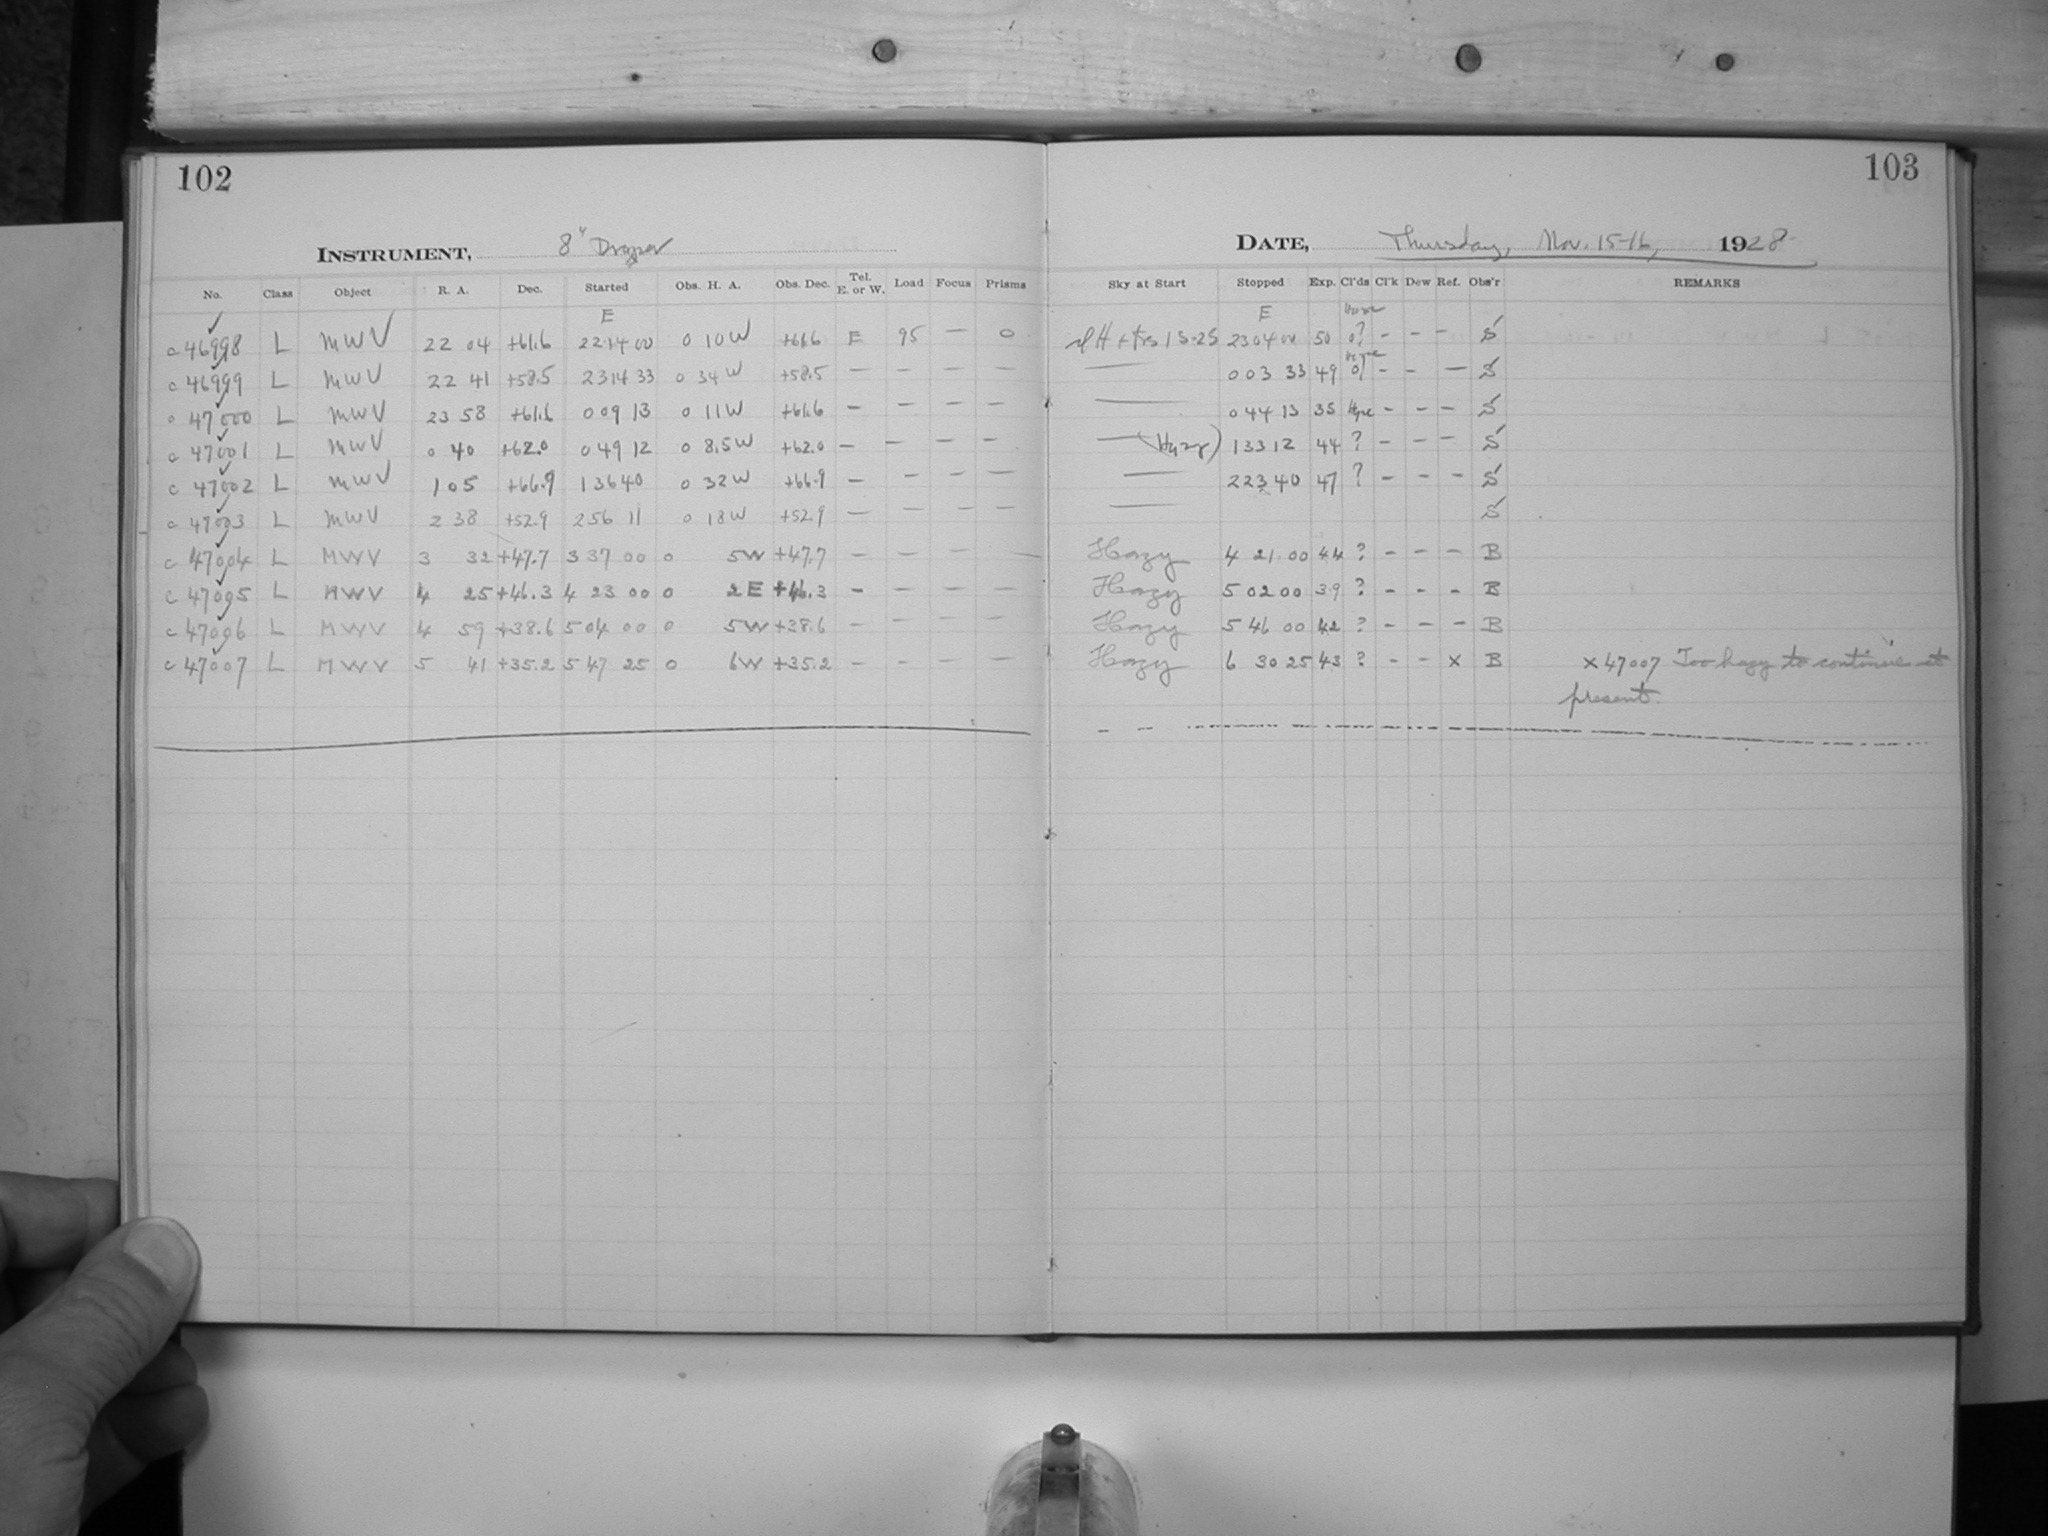 102
INSTRUMENT, 8" Draper
No. Class Object R. A. Dec. Started Obs. H. A. Obs. Dec. Tel. E. or W. Load Focus Prisms
E
c 46998 L MWV 22 04 +61.6 22 14 00 0 10 W +61.6 E 95 — 0
c 46999 L MWV 22 41 +58.5 23 14 33 0 34 W +58.5 — — — —
c 47000 L MWV 23 58 +61.6 0 09 13 0 11 W +61.6 — — — —
c 47001 L MWV 0 40 +62.0 0 49 12 0 8.5 W +62.0 — — — —
c 47002 L MWV 1 05 +66.9 1 36 40 0 32 W +66.9 — — — —
c 47003 L MWV 2 38 +52.9 2 56 11 0 18 W +52.9 — — — —
c 47004 L MWV 3 32 +47.7 3 37 00 0 5 W +47.7 — — — —
c 47005 L MWV 4 25 +46.3 4 23 00 0 2 E +46.3 — — — —
c 47006 L MWV 4 59 +38.6 5 04 00 0 5 W +38.6 — — — —
c 47007 L MWV 5 41 +35.2 5 47 25 0 6 W +35.2 — — — —
103
DATE, Thursday, Nov. 15-16, 1928
Sky at Start Stopped Exp. Cl'ds Cl'k Dew Ref. Obs'r REMARKS
E
15-25 23 04 00 50 ? - - - S
— 0 03 33 49 - - — S
— 0 44 13 35 Haze - - - S
— (Hazy) 1 33 12 44 ? - - - S
— 2 23 40 47 ? - - - S
— S
Hazy 4 21 00 44 ? - - - B
Hazy 5 02 00 39 ? - - - B
Hazy 5 46 00 42 ? - - - B
Hazy 6 30 25 43 ? - - x B x 47007 Too hazy to continue at
present.